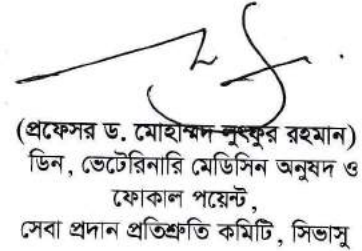 (প্রফেসর ড. মোহাম্মদ লুৎফুর রহমান)
ডিন, ভেটেরিনারি মেডিসিন অনুষদ ও
ফোকাল পয়েন্ট,
সেবা প্রদান প্রতিশ্রুতি কমিটি, সিভাসু